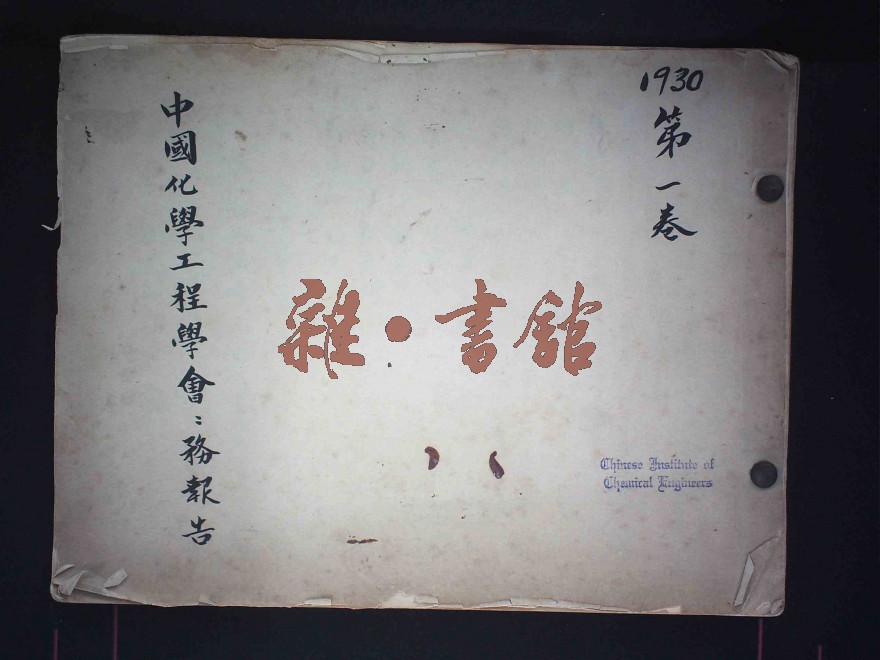 1930
第一卷
中國化學工程學會：務報告
雜•書館
Chinese Institute of
Chemical Engineers